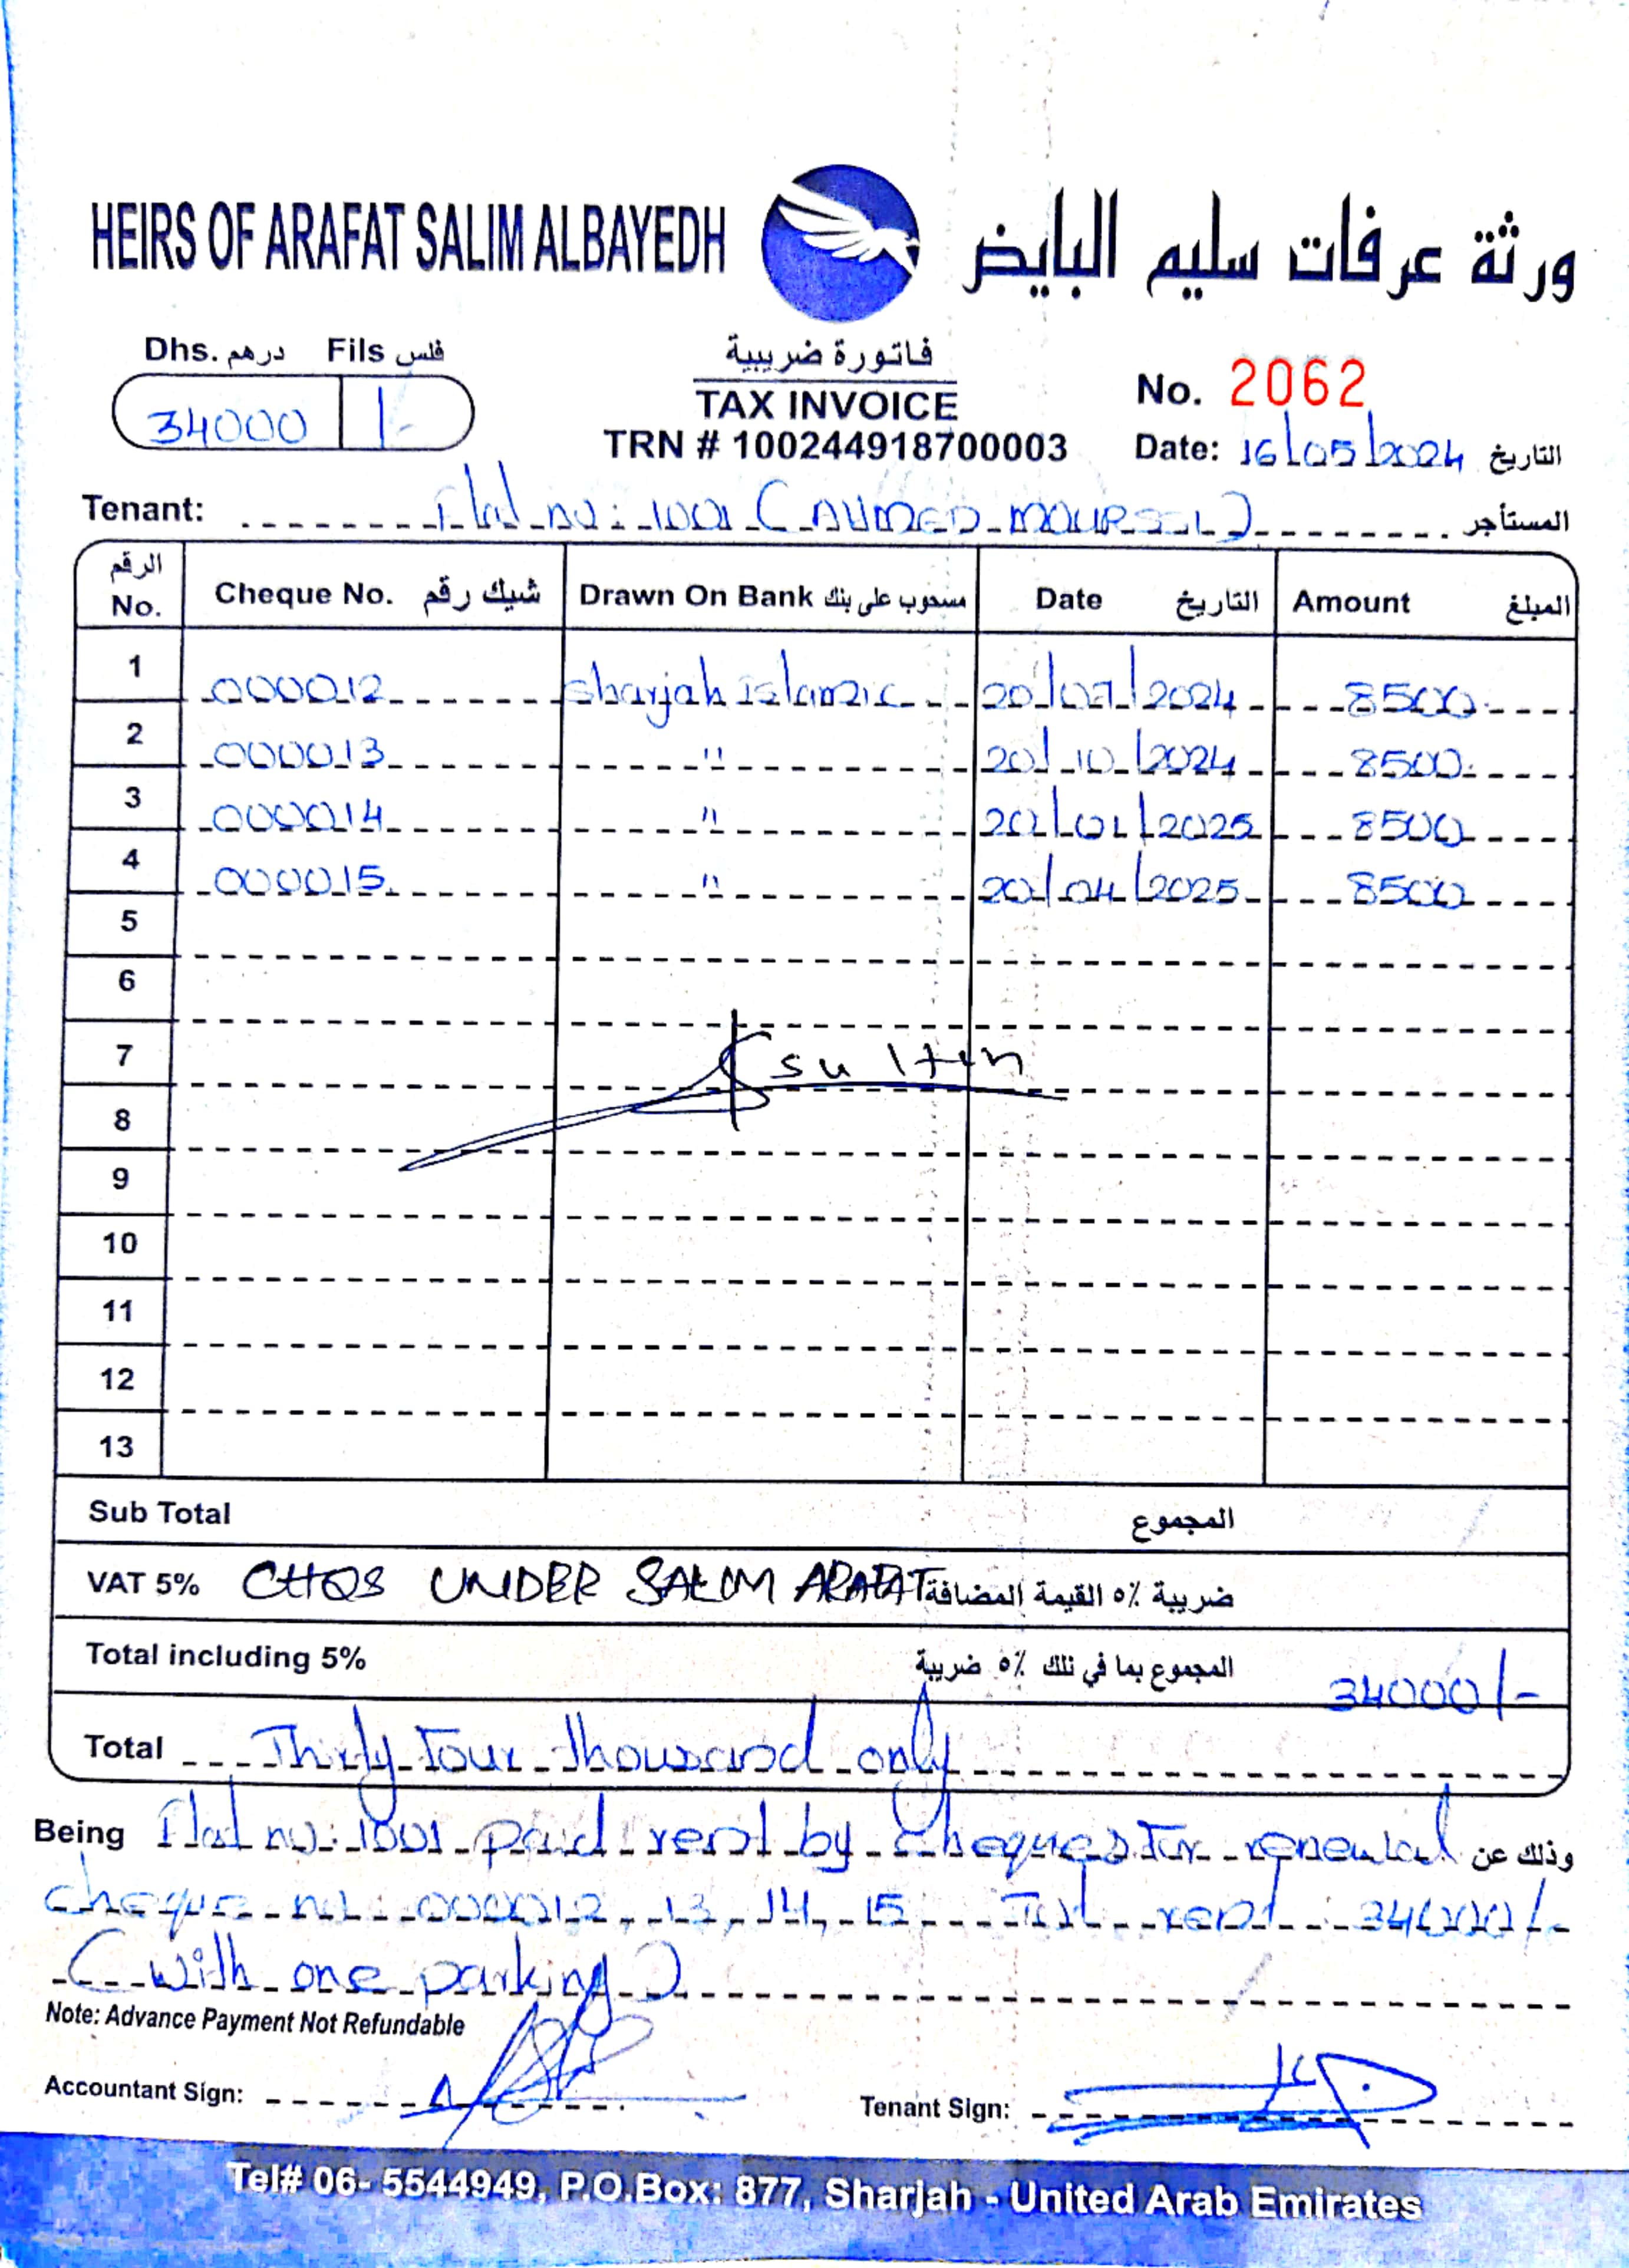 HEIRS OF ARAFAT SALIM ALBAYEDH ورثة عرفات سليم البايض
Dhs. درهم Fils فلس
34000 /-
فاتورة ضريبية
TAX INVOICE
TRN # 100244918700003
No. 2062
Date: 16/05/2024 التاريخ
Tenant: Flat no: 1001 (AHMED MOURSSI) المستأجر
الرقم No. Cheque No. شيك رقم Drawn On Bank مسحوب على بنك Date التاريخ Amount المبلغ
1 000012 Sharjah islamic 20/07/2024 8500
2 000013 " 20/10/2024 8500
3 000014 " 20/01/2025 8500
4 000015 " 20/04/2025 8500
5
6
7 sultan
8
9
10
11
12
13
Sub Total المجموع
VAT 5% CHQS UNDER SALIM ARAFAT ضريبة ٥٪ القيمة المضافة
Total including 5% المجموع بما في ذلك ٥٪ ضريبة 34000/-
Total Thirty Four thousand only
Being Flat no: 1001 paid rent by cheques for renewal وذلك عن
cheque no: 000012, 13, 14, 15 rent: 34000/-
(with one parking)
Note: Advance Payment Not Refundable
Accountant Sign:
Tenant Sign:
Tel# 06- 5544949, P.O.Box: 877, Sharjah - United Arab Emirates